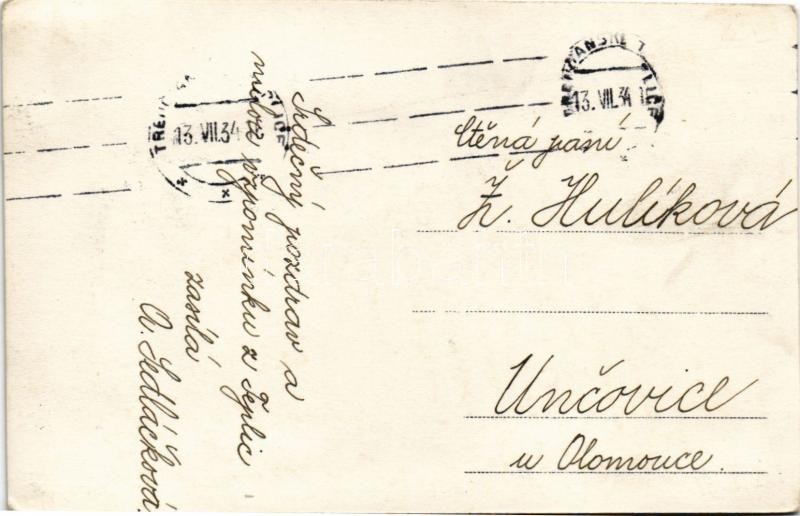 Srdečný pozdrav a
milou vzpomínku z Teplic
zasílá
A. Sedláčková.
13. VII. 34
13. VII. 34
Ctěná paní
Ž. Hulíková
Unčovice
u Olomouce.